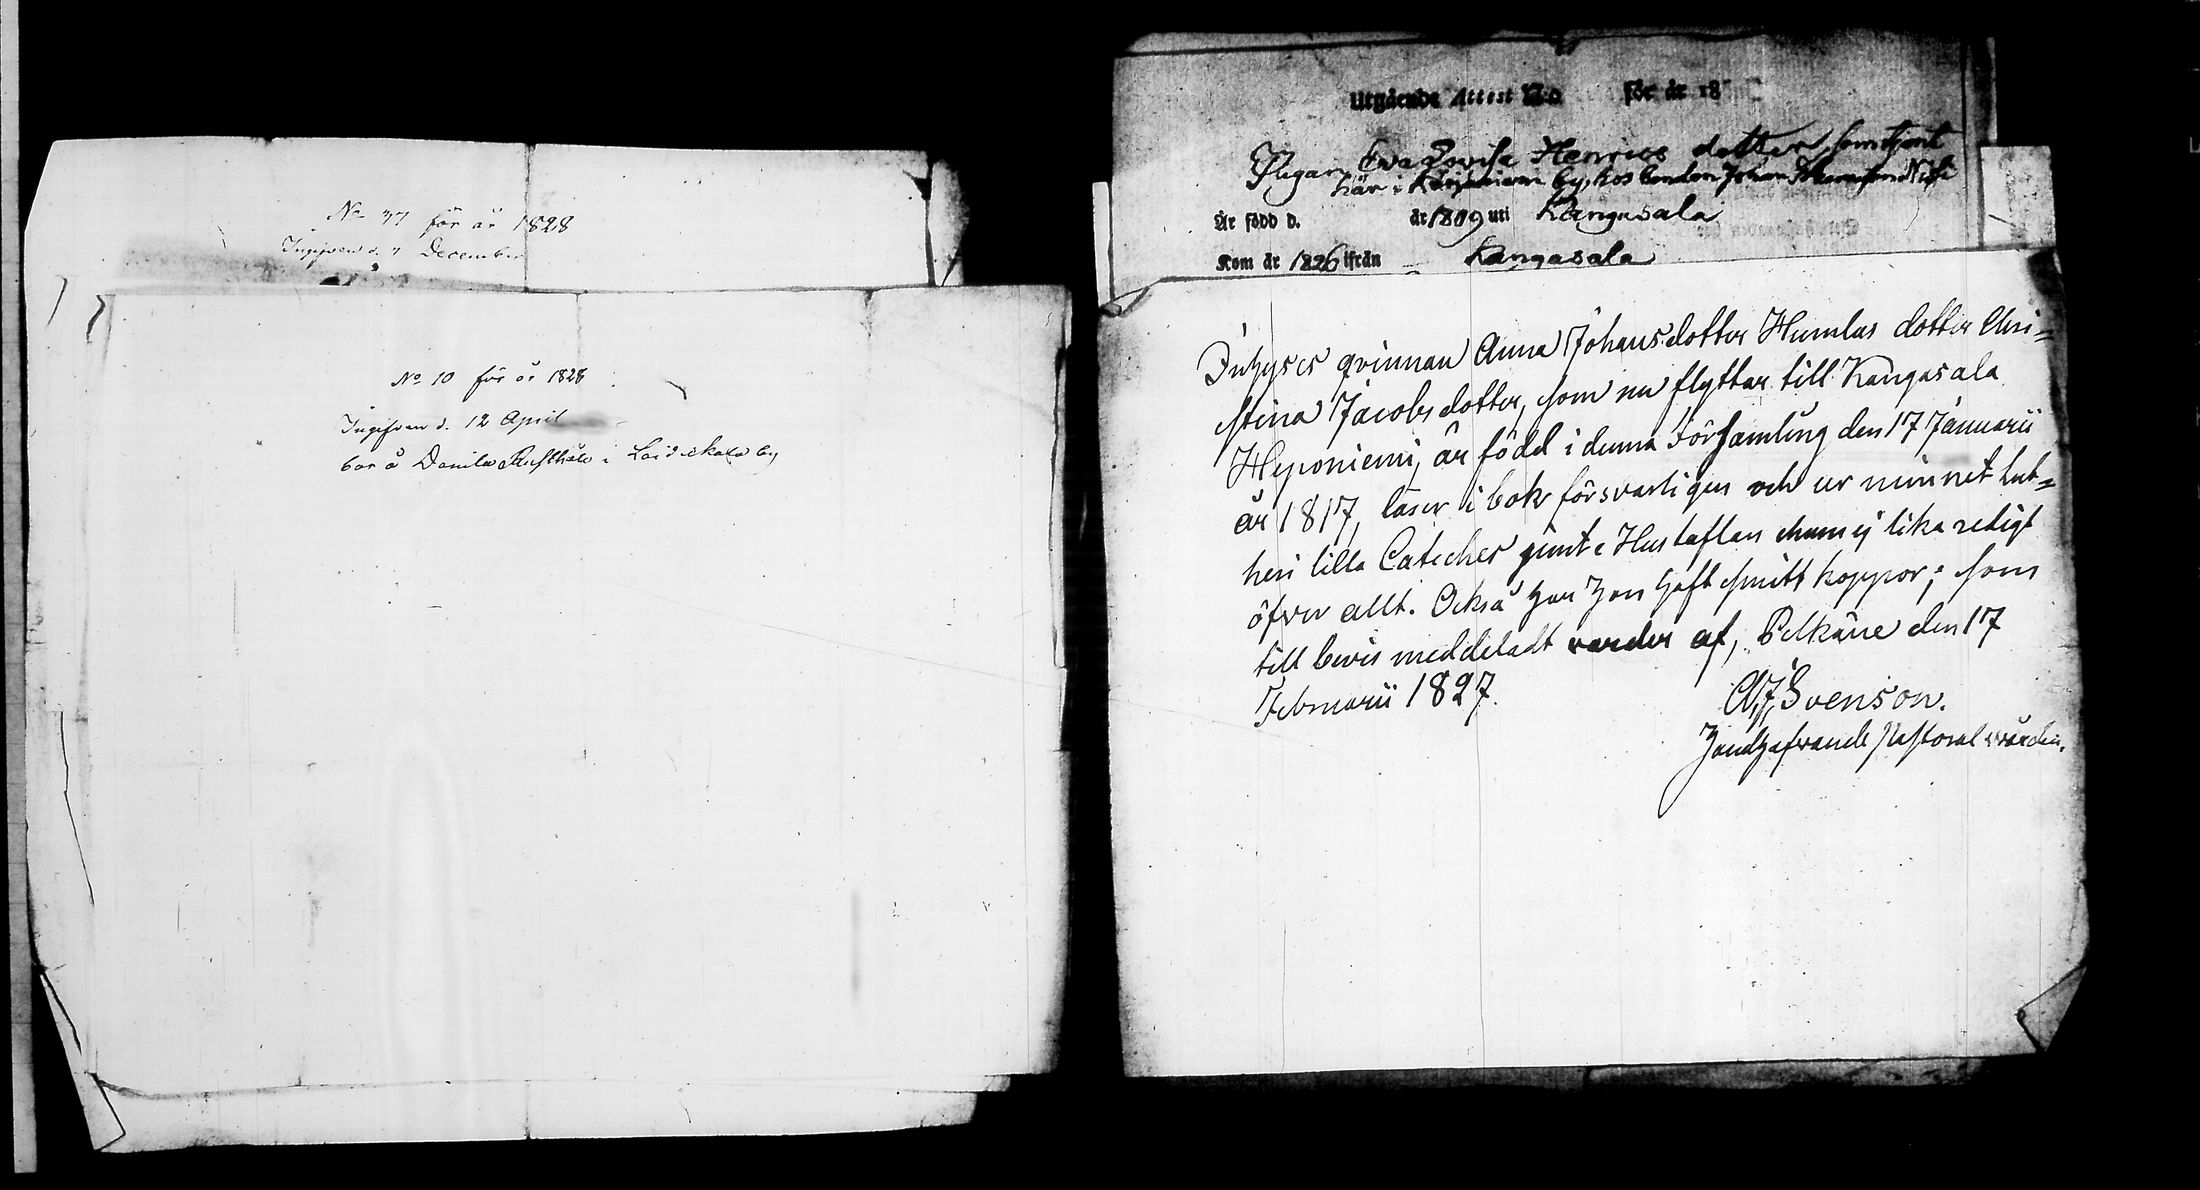 No 37 för år 1828
Ingifven d. 7 December
No 10 för år 1828
Ingifven d. 12 April
bor å Danila Rusthåll i Laidikala by
Utgående Attest No för år 18
Pigan Eva Lovisa Henrics dotter, som tjent
här i by, hos bonden Johan
Är född d. år 1809 uti Kangasala
Kom år 1826 ifrån Kangasala
Inhyses qvinnan Anna Johansdotter Humlas dotter Chri=
stina Jacobsdotter, som nu flyttar till Kangasala
Heponiemi, är född i denna Församling den 17 Januarii
år 1817, läser i bok försvarligen och ur minnet Lut=
heri lilla Cateches jemte Hustaflan men ej lika redigt
öfver allt. Också har hon haft smitt koppor; som
till bevis meddeladt varder af, Pelkäne den 17
Februarii 1827.
A.J. Svenson.
Handhafvande Pastoral vården.